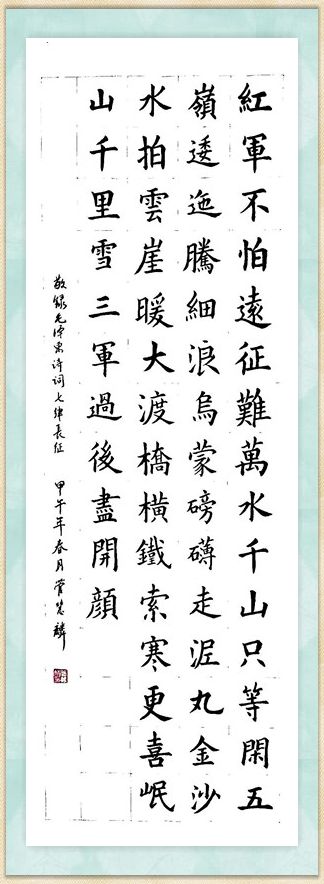 紅軍不怕遠征難萬水千山只等閑五
嶺逶迤騰細浪烏蒙磅礴走泥丸金沙
水拍雲崖暖大渡橋橫鐵索寒更喜岷
山千里雪三軍過後盡開顏
敬録毛澤東诗词七律長征 甲午年春月